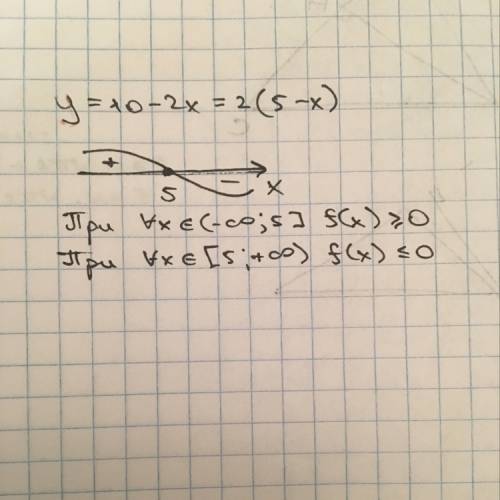 y = 10 - 2x = 2(5 - x)
+
5 - x
При ∀x ∈ (-∞; 5] f(x) ≥ 0
При ∀x ∈ [5; +∞) f(x) ≤ 0